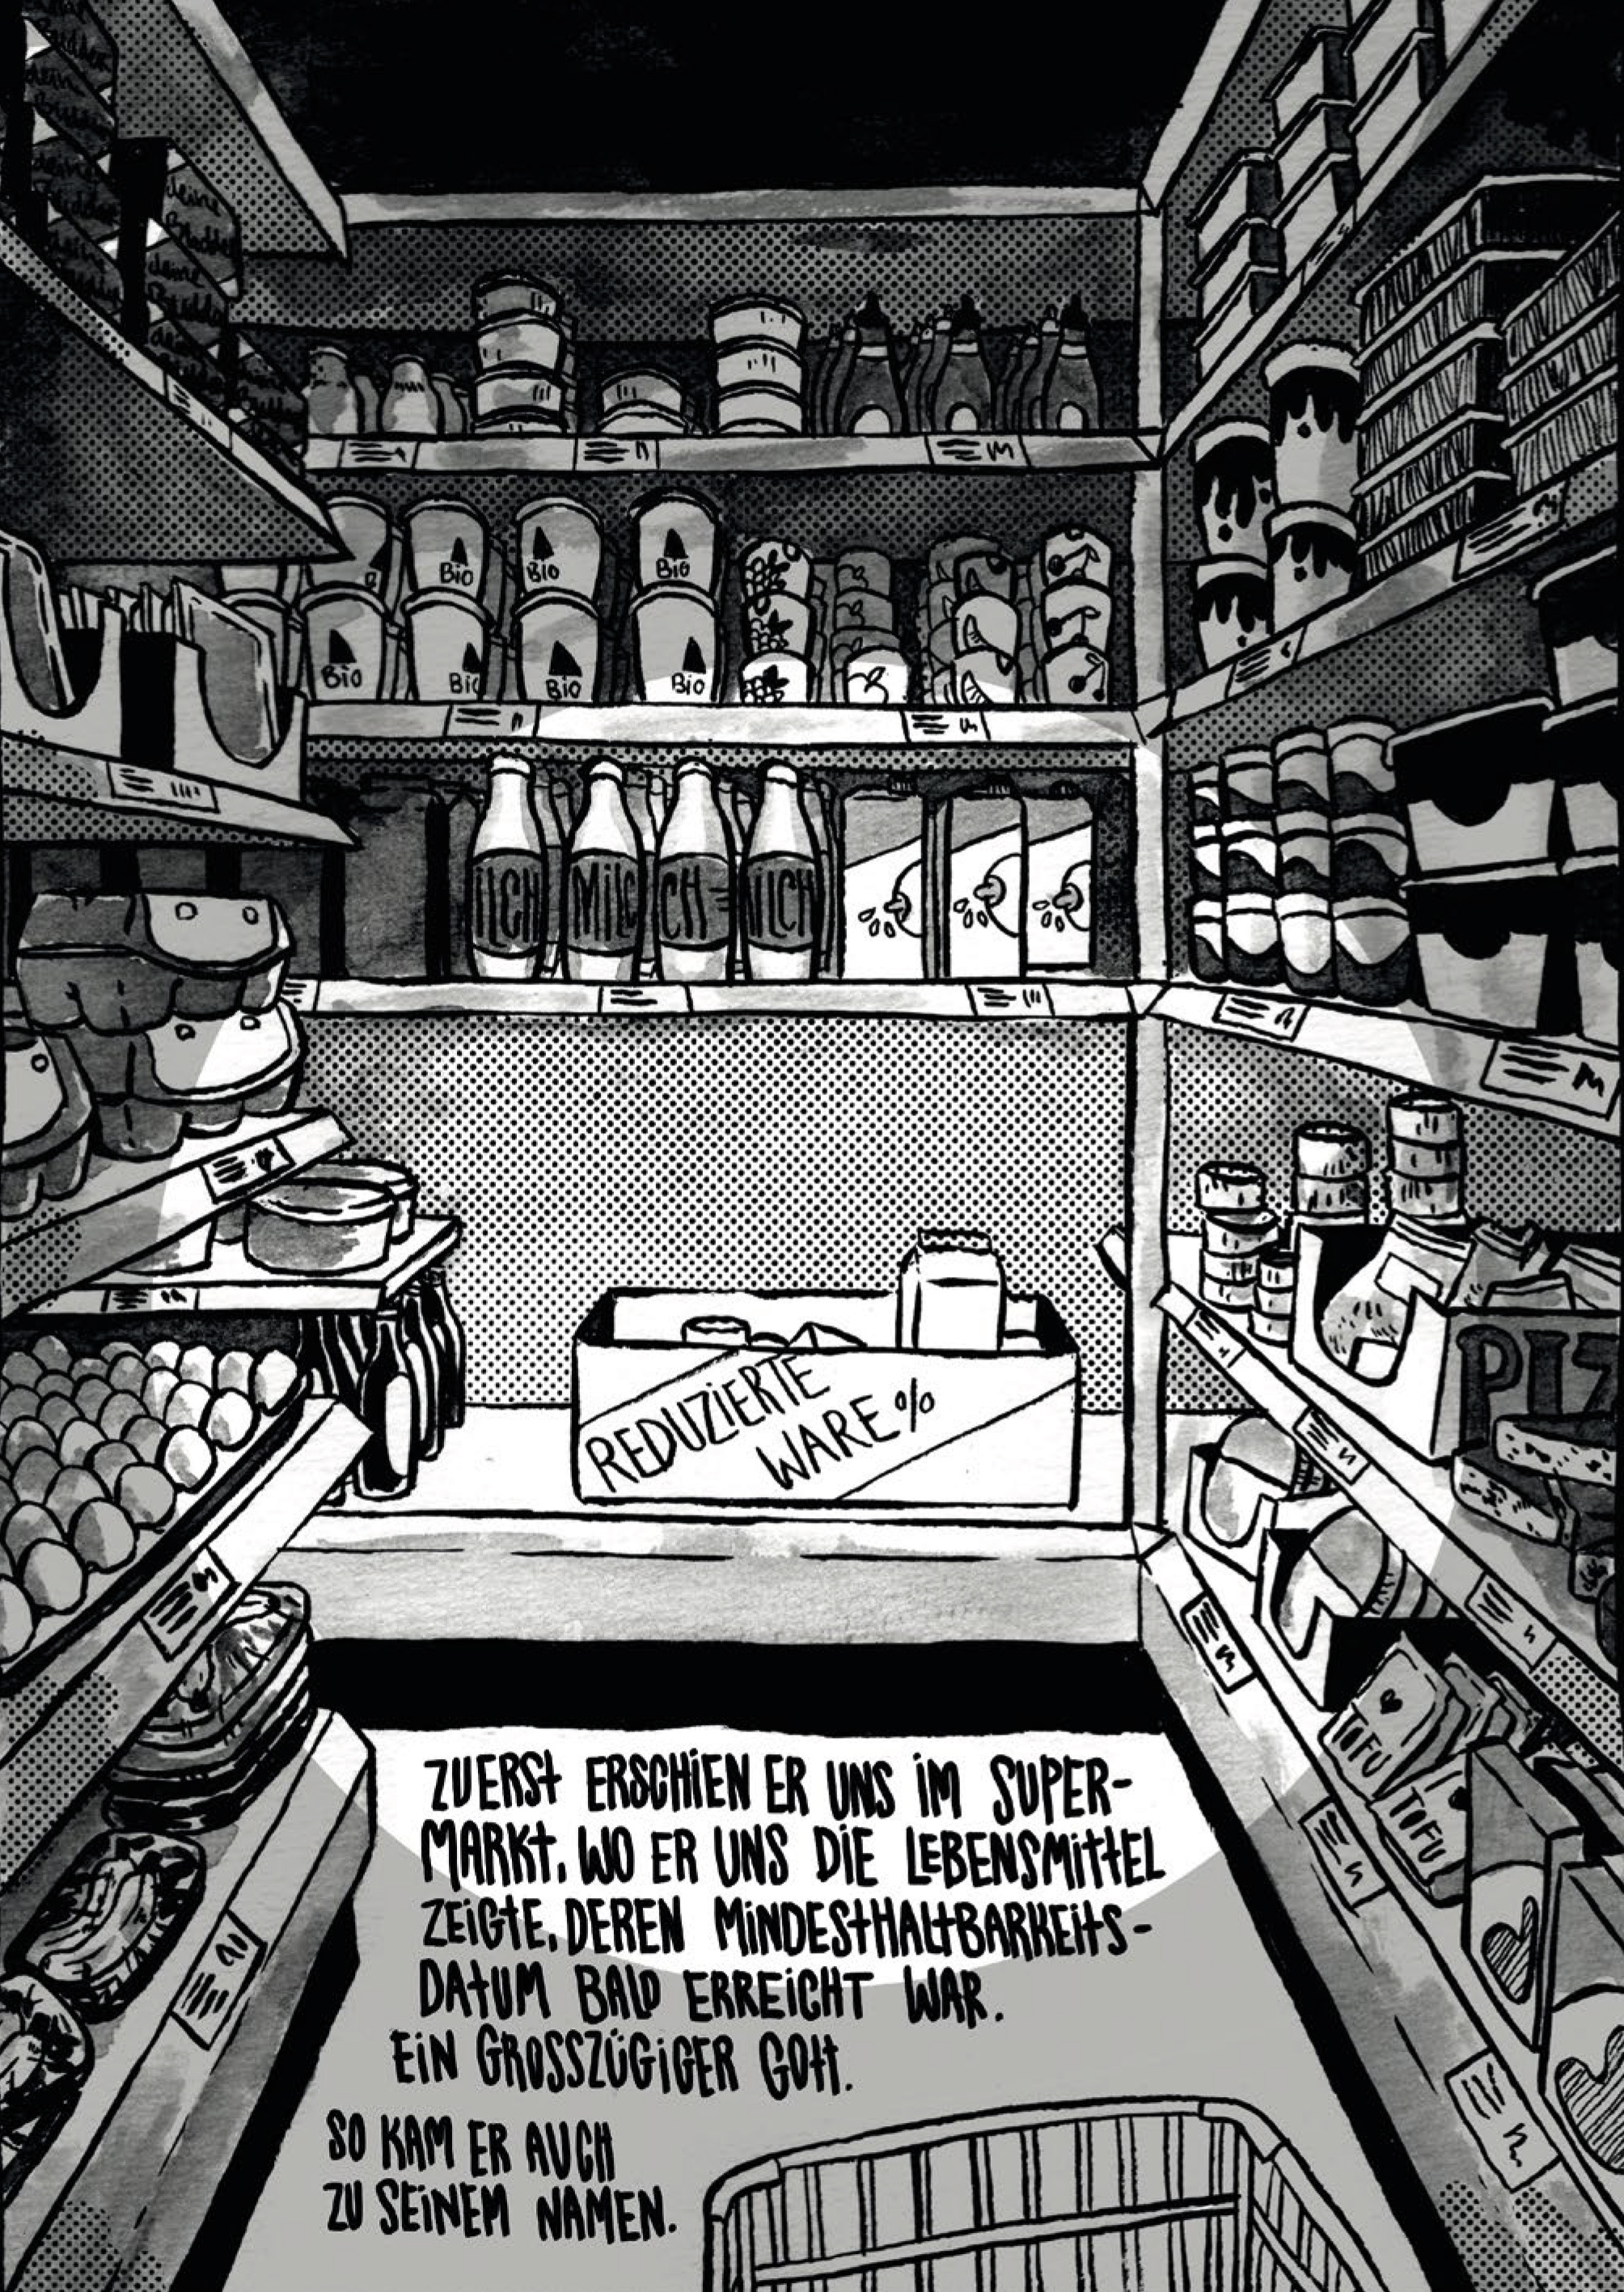 deine
Budder
Bio
Bio
Bio
Bio
Bio
Bio
Bio
ILCH
MILC
CH
ILCH
REDUZIERTE
WARE %
PIZ
TOFU
TOFU
ZUERST ERSCHIEN ER UNS IM SUPER-
MARKT, WO ER UNS DIE LEBENSMITTEL
ZEIGTE, DEREN MINDESTHALTBARKEITS-
DATUM BALD ERREICHT WAR.
EIN GROSSZÜGIGER GOTT.
SO KAM ER AUCH
ZU SEINEM NAMEN.